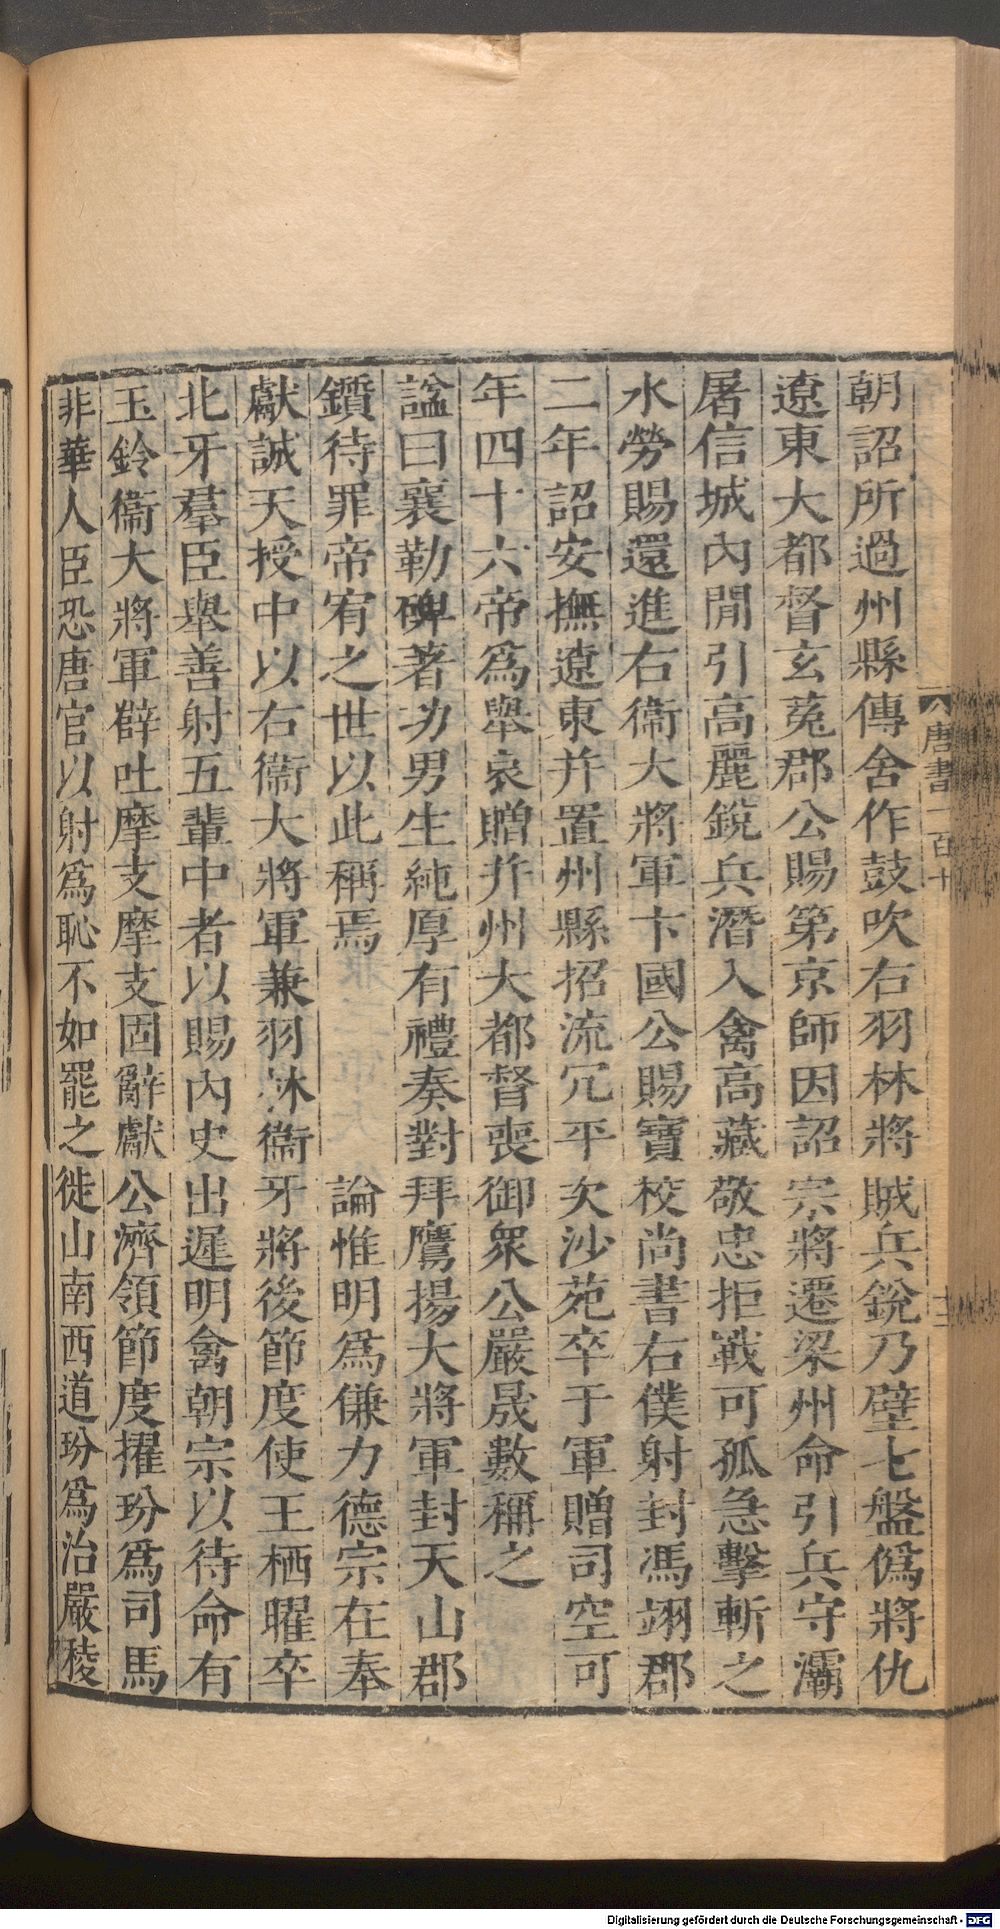 朝詔所過州縣傳舍作鼓吹右羽林將賊兵銳乃壁七盤僞將仇
遼東大都督玄菟郡公賜第京師因詔宗將遷梁州命引兵守灞
屠信城內閒引高麗銳兵潛入禽高藏敬忠拒戰可孤急擊斬之
水勞賜還進右衞大將軍卞國公賜寶校尚書右僕射封馮翊郡
二年詔安撫遼東并置州縣招流冗平次沙苑卒于軍贈司空可
年四十六帝爲舉哀贈并州大都督喪御衆公嚴晟數稱之
謚曰襄勒碑著功男生純厚有禮奏對拜鷹揚大將軍封天山郡
鑕待罪帝宥之世以此稱焉論惟明爲傔力德宗在奉
獻誠天授中以右衞大將軍兼羽林衞牙將後節度使王栖曜卒
北牙羣臣舉善射五輩中者以賜內史出遲明禽朝宗以待命有
玉鈐衞大將軍薛吐摩支摩支固辭獻公濟領節度擢玢爲司馬
非華人臣恐唐官以射爲恥不如罷之徙山南西道玢爲治嚴稜
唐書一百十
Digitalisierung gefördert durch die Deutsche Forschungsgemeinschaft - DFG